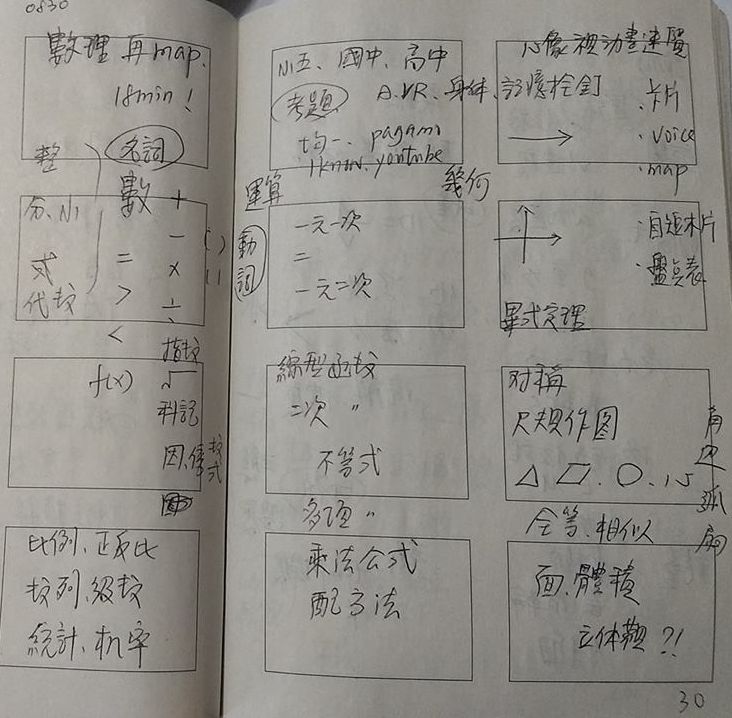 0830
數理 再 map.
18min !
整
名詞
數 +
分、小
式
代数
= > <
- × ÷
( )
f(x)
指数
√
科記
因、倍数式
比例、正反比
数列、級数
統計、机率
小五、國中、高中
考題 A.VR、身体、記憶栓釘
均一、pagamo
1know、youtube
運算
動詞
一元一次
二
一元二次
線型函数
二次 〃
不等式
多項 〃
乘法公式
配方法
心像視動畫連覽
→ .卡片
.voice
.map
幾何
.盤点表
畢式定理
对稱
尺規作图
角 边 弧
全等、相似
面、體積
立体觀 ?!
30